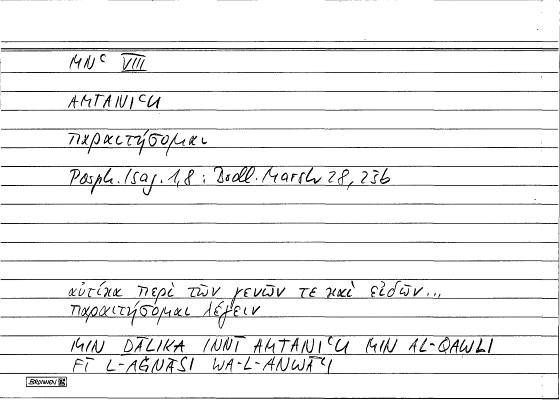 MNᶜ VIII
AMTANIᶜU
παραιτήσομαι
Porph. Isag. 1,8 : Bodl. Marsh 28, 23b
αὐτίκα περὶ τῶν γενῶν τε καὶ εἰδῶν...
παραιτήσομαι λέγειν
MIN ḎĀLIKA INNĪ AMTANIᶜU MIN AL-QAWLI
FĪ L-AǦNĀSI WA-L-ANWĀᶜI
BRUNNEN